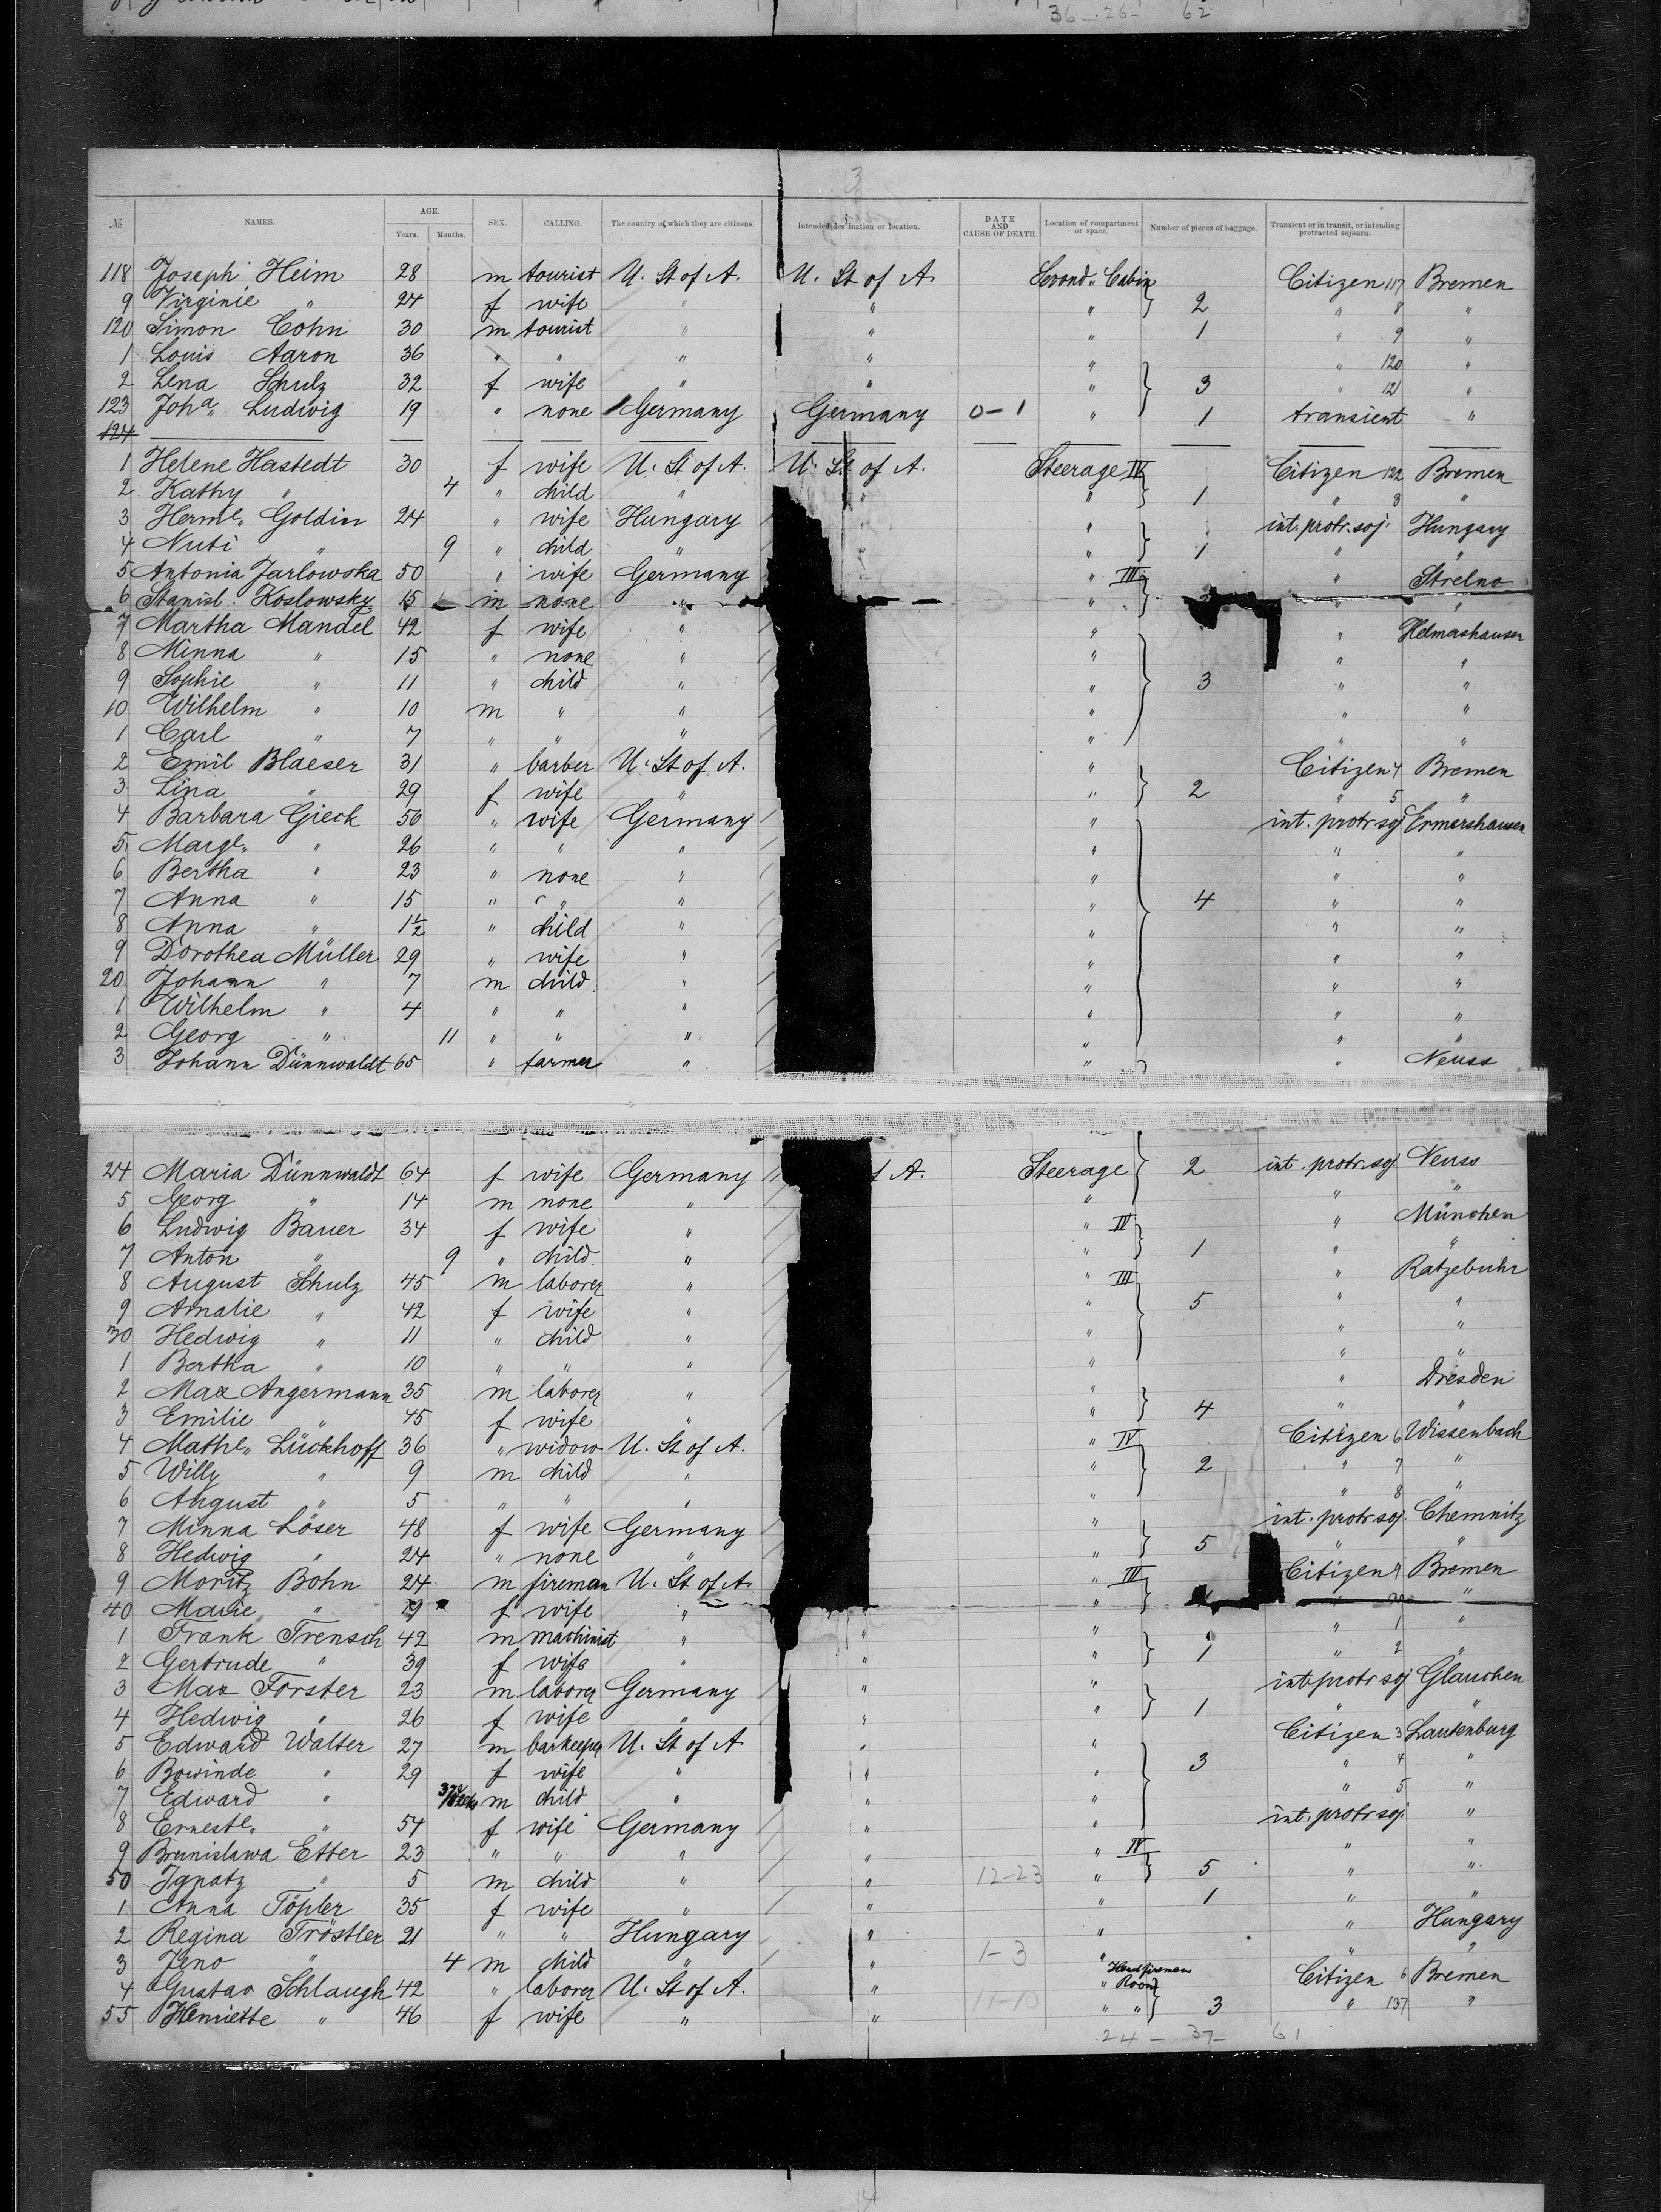 36 - 26 - 62
3
№ NAMES. AGE. Years. Months. SEX. CALLING. The country of which they are citizens. Intended destination or location. DATE AND CAUSE OF DEATH. Location of compartment or space. Number of pieces of baggage. Transient or in transit, or intending protracted sojourn.
118 Joseph Heim 28 m tourist U. St of A. U. St of A. Second Cabin Citizen 117 Bremen
9 Virginie " 24 f wife " " " 2 " 8 "
120 Simon Cohn 30 m tourist " " " 1 " 9 "
1 Louis Aaron 36 " " " " " " 120 "
2 Lena Schulz 32 f wife " " " 3 " 121 "
123 Joh^a. Ludwig 19 " none Germany Germany 0-1 " 1 transient "
124
1 Helene Hastedt 30 f wife U. St of A. U. St of A. Steerage IV Citizen 122 Bremen
2 Kathy " 4 " child " " " 1 " 3 "
3 Herm^e. Goldin 24 " wife Hungary " int. protr. soj. Hungary
4 Nuti " 9 " child " " 1 " "
5 Antonia Jarlowska 50 " wife Germany " III " Strelno
6 Stanisl. Koslowsky 15 m none " " " "
7 Martha Mandel 42 f wife " " " Helmershausen
8 Minna " 15 " none " " " "
9 Sophie " 11 " child " " 3 " "
10 Wilhelm " 10 m " " " " "
1 Carl " 7 " " " " " "
2 Emil Blaeser 31 " barber U. St of A. " Citizen 4 Bremen
3 Lina " 29 f wife " " 2 " 5 "
4 Barbara Gieck 56 " wife Germany " int. protr soj Ermershausen
5 Marg^e. " 26 " " " " " "
6 Bertha " 23 " none " " " "
7 Anna " 15 " " " " 4 " "
8 Anna " 1½ " child " " " "
9 Dorothea Müller 29 " wife " " " "
20 Johann " 7 m child " " " "
1 Wilhelm " 4 " " " " " "
2 Georg " 11 " " " " " "
3 Johann Dünnwaldt 65 " farmer " " " Neuss
24 Maria Dünnwaldt 64 f wife Germany f A. Steerage 2 int. protr. soj. Neuss
5 Georg " 14 m none " " " "
6 Ludwig Bauer 34 f wife " " IV " München
7 Anton " 9 " child " " 1 " "
8 August Schulz 45 m laborer " " III " Ratzebuhr
9 Amalie " 42 f wife " " 5 " "
30 Hedwig " 11 " child " " " "
1 Bertha " 10 " " " " " "
2 Max Angermann 35 m laborer " " " Dresden
3 Emilie " 45 f wife " " 4 " "
4 Math^e. Lückhoff 36 " widow U. St of A. " IV Citizen 6 Wissenbach
5 Willy " 9 m child " " 2 " 7 "
6 August " 5 " " " " " 8 "
7 Minna Löser 48 f wife Germany " int. protr soj. Chemnitz
8 Hedwig " 24 " none " " 5 " "
9 Moritz Bohn 24 m fireman U. St of A. " III Citizen 9 Bremen
40 Marie " 19 f wife " " "
1 Frank Trensch 42 m machinist " " " " 1 "
2 Gertrude " 39 f wife " " " 1 " 2 "
3 Max Forster 23 m laborer Germany " " int protr soj Glauchen
4 Hedwig " 26 f wife " " " 1 " "
5 Edward Walter 27 m barkeeper U. St of A " " Citizen 3 Lautenburg
6 Bowinde " 29 f wife " " " 3 " 4 "
7 Edward " m child " " " " 5 "
8 Ernest^e. " 54 f wife Germany " " int. protr soj. "
9 Brunislawa Etter 23 " " " " " IV " "
50 Ignatz " 5 m child " " 12-23 " 5 " "
1 Anna Töpler 35 f wife " " " 1 " "
2 Regina Tröstler 21 " " Hungary " " " Hungary
3 Jeno " 4 m child " " 1-3 " " "
4 Gustav Schlaugh 42 " laborer U. St of A. " " Room Citizen 6 Bremen
55 Henriette " 46 f wife " " 11-10 " " 3 " 137 "
24 - 37 - 61